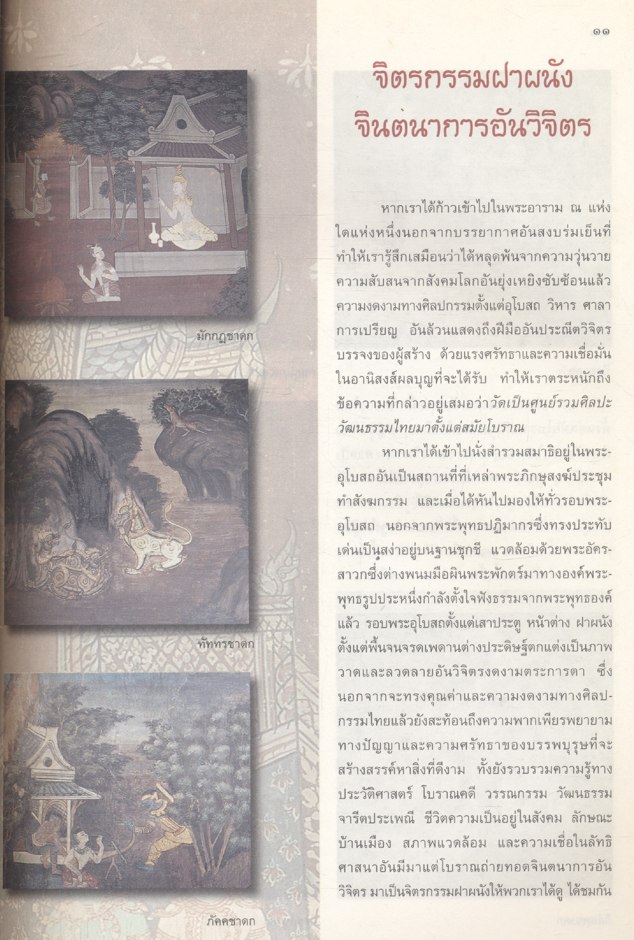 ๑๑
จิตรกรรมฝาผนัง
จินตนาการอันวิจิตร
หากเราได้ก้าวเข้าไปในพระอาราม ณ แห่ง
ใดแห่งหนึ่งนอกจากบรรยากาศอันสงบร่มเย็นที่
ทำให้เรารู้สึกเสมือนว่าได้หลุดพ้นจากความวุ่นวาย
ความสับสนจากสังคมโลกอันยุ่งเหยิงซับซ้อนแล้ว
ความงดงามทางศิลปกรรมตั้งแต่อุโบสถ วิหาร ศาลา
การเปรียญ อันล้วนแสดงถึงฝีมืออันประณีตวิจิตร
บรรจงของผู้สร้าง ด้วยแรงศรัทธาและความเชื่อมั่น
ในอานิสงส์ผลบุญที่จะได้รับ ทำให้เราตระหนักถึง
ข้อความที่กล่าวอยู่เสมอว่าวัดเป็นศูนย์รวมศิลปะ
วัฒนธรรมไทยมาตั้งแต่สมัยโบราณ
หากเราได้เข้าไปนั่งสำรวมสมาธิอยู่ในพระ-
อุโบสถอันเป็นสถานที่ที่เหล่าพระภิกษุสงฆ์ประชุม
ทำสังฆกรรม และเมื่อได้หันไปมองให้ทั่วรอบพระ-
อุโบสถ นอกจากพระพุทธปฏิมากรซึ่งทรงประทับ
เด่นเป็นสง่าอยู่บนฐานชุกชี แวดล้อมด้วยพระอัคร-
สาวกซึ่งต่างพนมมือผินพระพักตร์มาทางองค์พระ-
พุทธรูปประหนึ่งกำลังตั้งใจฟังธรรมจากพระพุทธองค์
แล้ว รอบพระอุโบสถตั้งแต่เสาประตู หน้าต่าง ฝาผนัง
ตั้งแต่พื้นจนจรดเพดานต่างประดิษฐ์ตกแต่งเป็นภาพ
วาดและลวดลายอันวิจิตรงดงามตระการตา ซึ่ง
นอกจากจะทรงคุณค่าและความงดงามทางศิลป-
กรรมไทยแล้วยังสะท้อนถึงความพากเพียรพยายาม
ทางปัญญาและความศรัทธาของบรรพบุรุษที่จะ
สร้างสรรค์หาสิ่งที่ดีงาม ทั้งยังรวบรวมความรู้ทาง
ประวัติศาสตร์ โบราณคดี วรรณกรรม วัฒนธรรม
จารีตประเพณี ชีวิตความเป็นอยู่ในสังคม ลักษณะ
บ้านเมือง สภาพแวดล้อม และความเชื่อในลัทธิ
ศาสนาอันมีมาแต่โบราณถ่ายทอดจินตนาการอัน
วิจิตร มาเป็นจิตรกรรมฝาผนังให้พวกเราได้ดู ได้ชมกัน
มักกฏชาดก
ทัททรชาดก
ภัคคชาดก